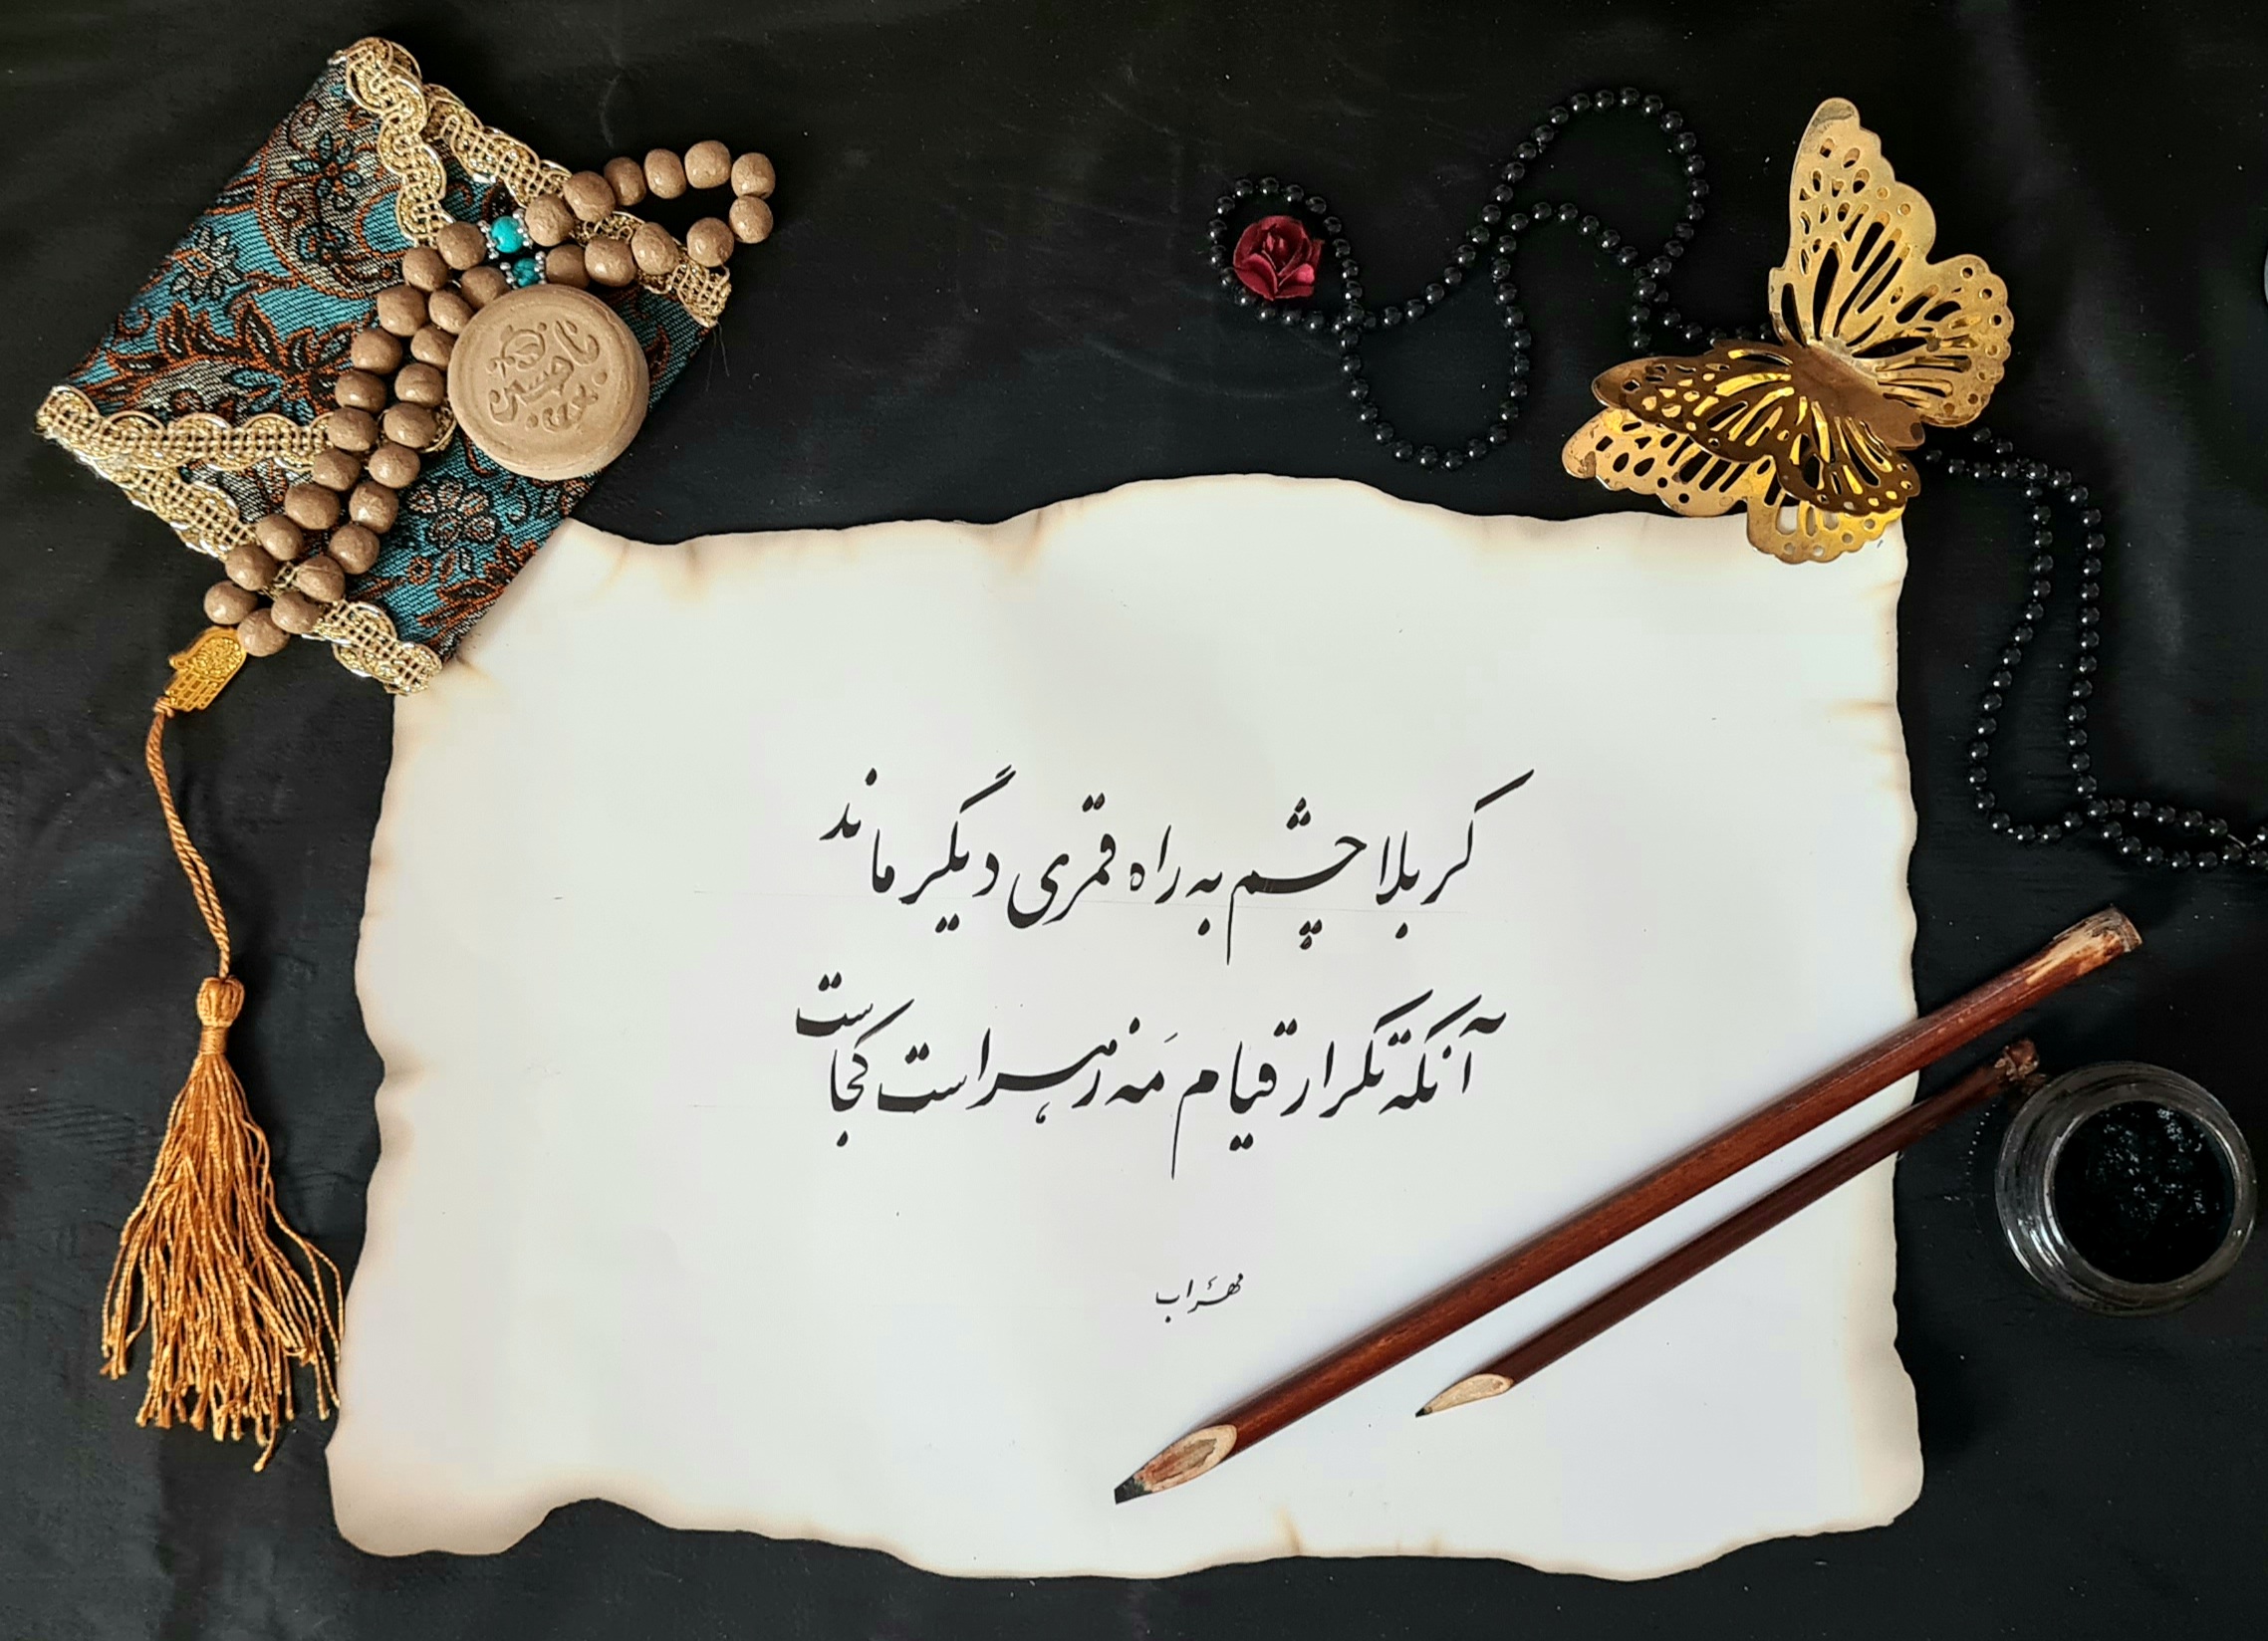 یا حسین
کربلا چشم به راه قمری دیگر ماند
آنکه تکرار قیام مَه زهراست کجاست
مهرَاب